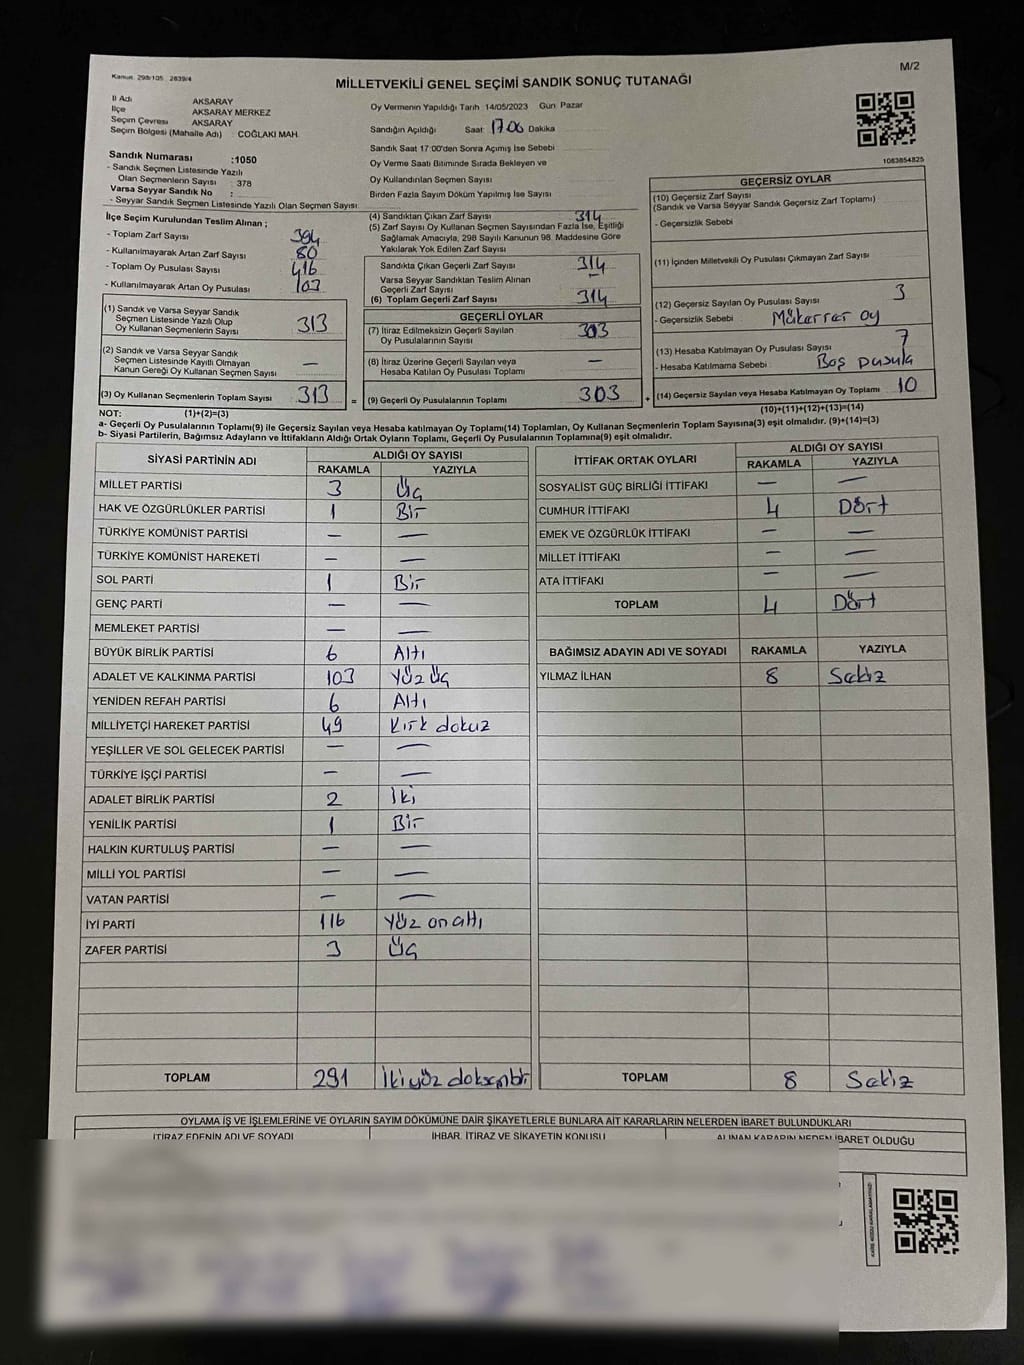 Kanun. 298/105 2839/4
M/2
MİLLETVEKİLİ GENEL SEÇİMİ SANDIK SONUÇ TUTANAĞI
İl Adı AKSARAY
İlçe AKSARAY MERKEZ
Seçim Çevresi AKSARAY
Seçim Bölgesi (Mahalle Adı) : COĞLAKI MAH.
Sandık Numarası :1050
- Sandık Seçmen Listesinde Yazılı
Olan Seçmenlerin Sayısı : 378
Varsa Seyyar Sandık No :
- Seyyar Sandık Seçmen Listesinde Yazılı Olan Seçmen Sayısı:
Oy Vermenin Yapıldığı Tarih 14/05/2023 Gün: Pazar
Sandığın Açıldığı Saat: 17.06 Dakika
Sandık Saat 17:00'den Sonra Açılmış İse Sebebi
Oy Verme Saati Bitiminde Sırada Bekleyen ve
Oy Kullandırılan Seçmen Sayısı
Birden Fazla Sayım Döküm Yapılmış İse Sayısı
1063854825
İlçe Seçim Kurulundan Teslim Alınan ;
- Toplam Zarf Sayısı 394
- Kullanılmayarak Artan Zarf Sayısı 80
- Toplam Oy Pusulası Sayısı 416
- Kullanılmayarak Artan Oy Pusulası 103
(1) Sandık ve Varsa Seyyar Sandık
Seçmen Listesinde Yazılı Olup
Oy Kullanan Seçmenlerin Sayısı 313
(2) Sandık ve Varsa Seyyar Sandık
Seçmen Listesinde Kayıtlı Olmayan
Kanun Gereği Oy Kullanan Seçmen Sayısı —
(3) Oy Kullanan Seçmenlerin Toplam Sayısı 313 =
(4) Sandıktan Çıkan Zarf Sayısı 314
(5) Zarf Sayısı Oy Kullanan Seçmen Sayısından Fazla İse, Eşitliği
Sağlamak Amacıyla, 298 Sayılı Kanunun 98. Maddesine Göre
Yakılarak Yok Edilen Zarf Sayısı
Sandıkta Çıkan Geçerli Zarf Sayısı 314
Varsa Seyyar Sandıktan Teslim Alınan
Geçerli Zarf Sayısı —
(6) Toplam Geçerli Zarf Sayısı 314
GEÇERLİ OYLAR
(7) İtiraz Edilmeksizin Geçerli Sayılan
Oy Pusulalarının Sayısı 303
(8) İtiraz Üzerine Geçerli Sayılan veya
Hesaba Katılan Oy Pusulası Toplamı —
(9) Geçerli Oy Pusulalarının Toplamı 303 +
GEÇERSİZ OYLAR
(10) Geçersiz Zarf Sayısı
(Sandık ve Varsa Seyyar Sandık Geçersiz Zarf Toplamı)
- Geçersizlik Sebebi
(11) İçinden Milletvekili Oy Pusulası Çıkmayan Zarf Sayısı
(12) Geçersiz Sayılan Oy Pusulası Sayısı 3
- Geçersizlik Sebebi Mükerrer oy
(13) Hesaba Katılmayan Oy Pusulası Sayısı 7
- Hesaba Katılmama Sebebi Boş pusula
(14) Geçersiz Sayılan veya Hesaba Katılmayan Oy Toplamı 10
NOT: (1)+(2)=(3) (10)+(11)+(12)+(13)=(14)
a- Geçerli Oy Pusulalarının Toplamı(9) ile Geçersiz Sayılan veya Hesaba katılmayan Oy Toplamı(14) Toplamları, Oy Kullanan Seçmenlerin Toplam Sayısına(3) eşit olmalıdır. (9)+(14)=(3)
b- Siyasi Partilerin, Bağımsız Adayların ve İttifakların Aldığı Ortak Oyların Toplamı, Geçerli Oy Pusulalarının Toplamına(9) eşit olmalıdır.
SİYASİ PARTİNİN ADI ALDIĞI OY SAYISI
RAKAMLA YAZIYLA
MİLLET PARTİSİ 3 Üç
HAK VE ÖZGÜRLÜKLER PARTİSİ 1 Bir
TÜRKİYE KOMÜNİST PARTİSİ — —
TÜRKİYE KOMÜNİST HAREKETİ — —
SOL PARTİ 1 Bir
GENÇ PARTİ — —
MEMLEKET PARTİSİ — —
BÜYÜK BİRLİK PARTİSİ 6 Altı
ADALET VE KALKINMA PARTİSİ 103 Yüz üç
YENİDEN REFAH PARTİSİ 6 Altı
MİLLİYETÇİ HAREKET PARTİSİ 49 Kırk dokuz
YEŞİLLER VE SOL GELECEK PARTİSİ — —
TÜRKİYE İŞÇİ PARTİSİ — —
ADALET BİRLİK PARTİSİ 2 İki
YENİLİK PARTİSİ 1 Bir
HALKIN KURTULUŞ PARTİSİ — —
MİLLİ YOL PARTİSİ — —
VATAN PARTİSİ — —
İYİ PARTİ 116 Yüz on altı
ZAFER PARTİSİ 3 Üç
TOPLAM 291 İki yüz doksan bir
İTTİFAK ORTAK OYLARI ALDIĞI OY SAYISI
RAKAMLA YAZIYLA
SOSYALİST GÜÇ BİRLİĞİ İTTİFAKI — —
CUMHUR İTTİFAKI 4 Dört
EMEK VE ÖZGÜRLÜK İTTİFAKI — —
MİLLET İTTİFAKI — —
ATA İTTİFAKI — —
TOPLAM 4 Dört
BAĞIMSIZ ADAYIN ADI VE SOYADI RAKAMLA YAZIYLA
YILMAZ İLHAN 8 Sekiz
TOPLAM 8 Sekiz
OYLAMA İŞ VE İŞLEMLERİNE VE OYLARIN SAYIM DÖKÜMÜNE DAİR ŞİKAYETLERLE BUNLARA AİT KARARLARIN NELERDEN İBARET BULUNDUKLARI
İTİRAZ EDENİN ADI VE SOYADI İHBAR, İTİRAZ VE ŞİKAYETİN KONUSU ALINAN KARARIN NEDEN İBARET OLDUĞU